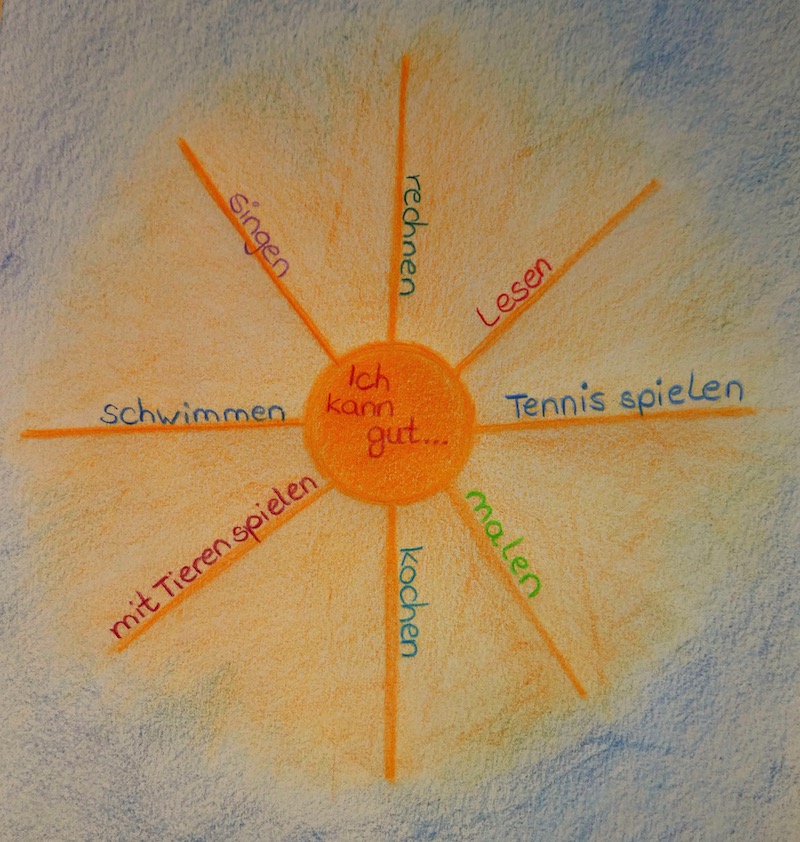 Ich
kann
gut...
rechnen
Lesen
Tennis spielen
malen
kochen
mit Tieren spielen
schwimmen
singen